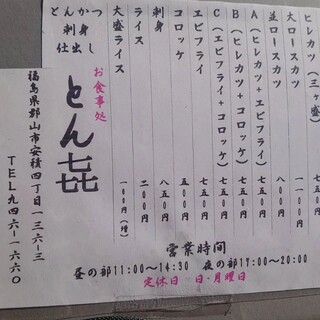 ヒレカツ(三ヶ盛)
大ロースカツ 一一〇〇円
並ロースカツ 八〇〇円
A(ヒレカツ+エビフライ) 七五〇円
B(ヒレカツ+コロッケ) 七五〇円
C(エビフライ+コロッケ) 七五〇円
エビフライ 七五〇円
コロッケ 五〇〇円
刺身 八五〇円
ライス 二〇〇円
大盛ライス 一〇〇円(増)
とんかつ
刺身
仕出し
お食事処
とん㐂
福島県郡山市安積四丁目一三六-三
TEL九四六-一六六〇
営業時間
昼の部11:00~14:30 夜の部17:00~20:00
定休日 日・月曜日